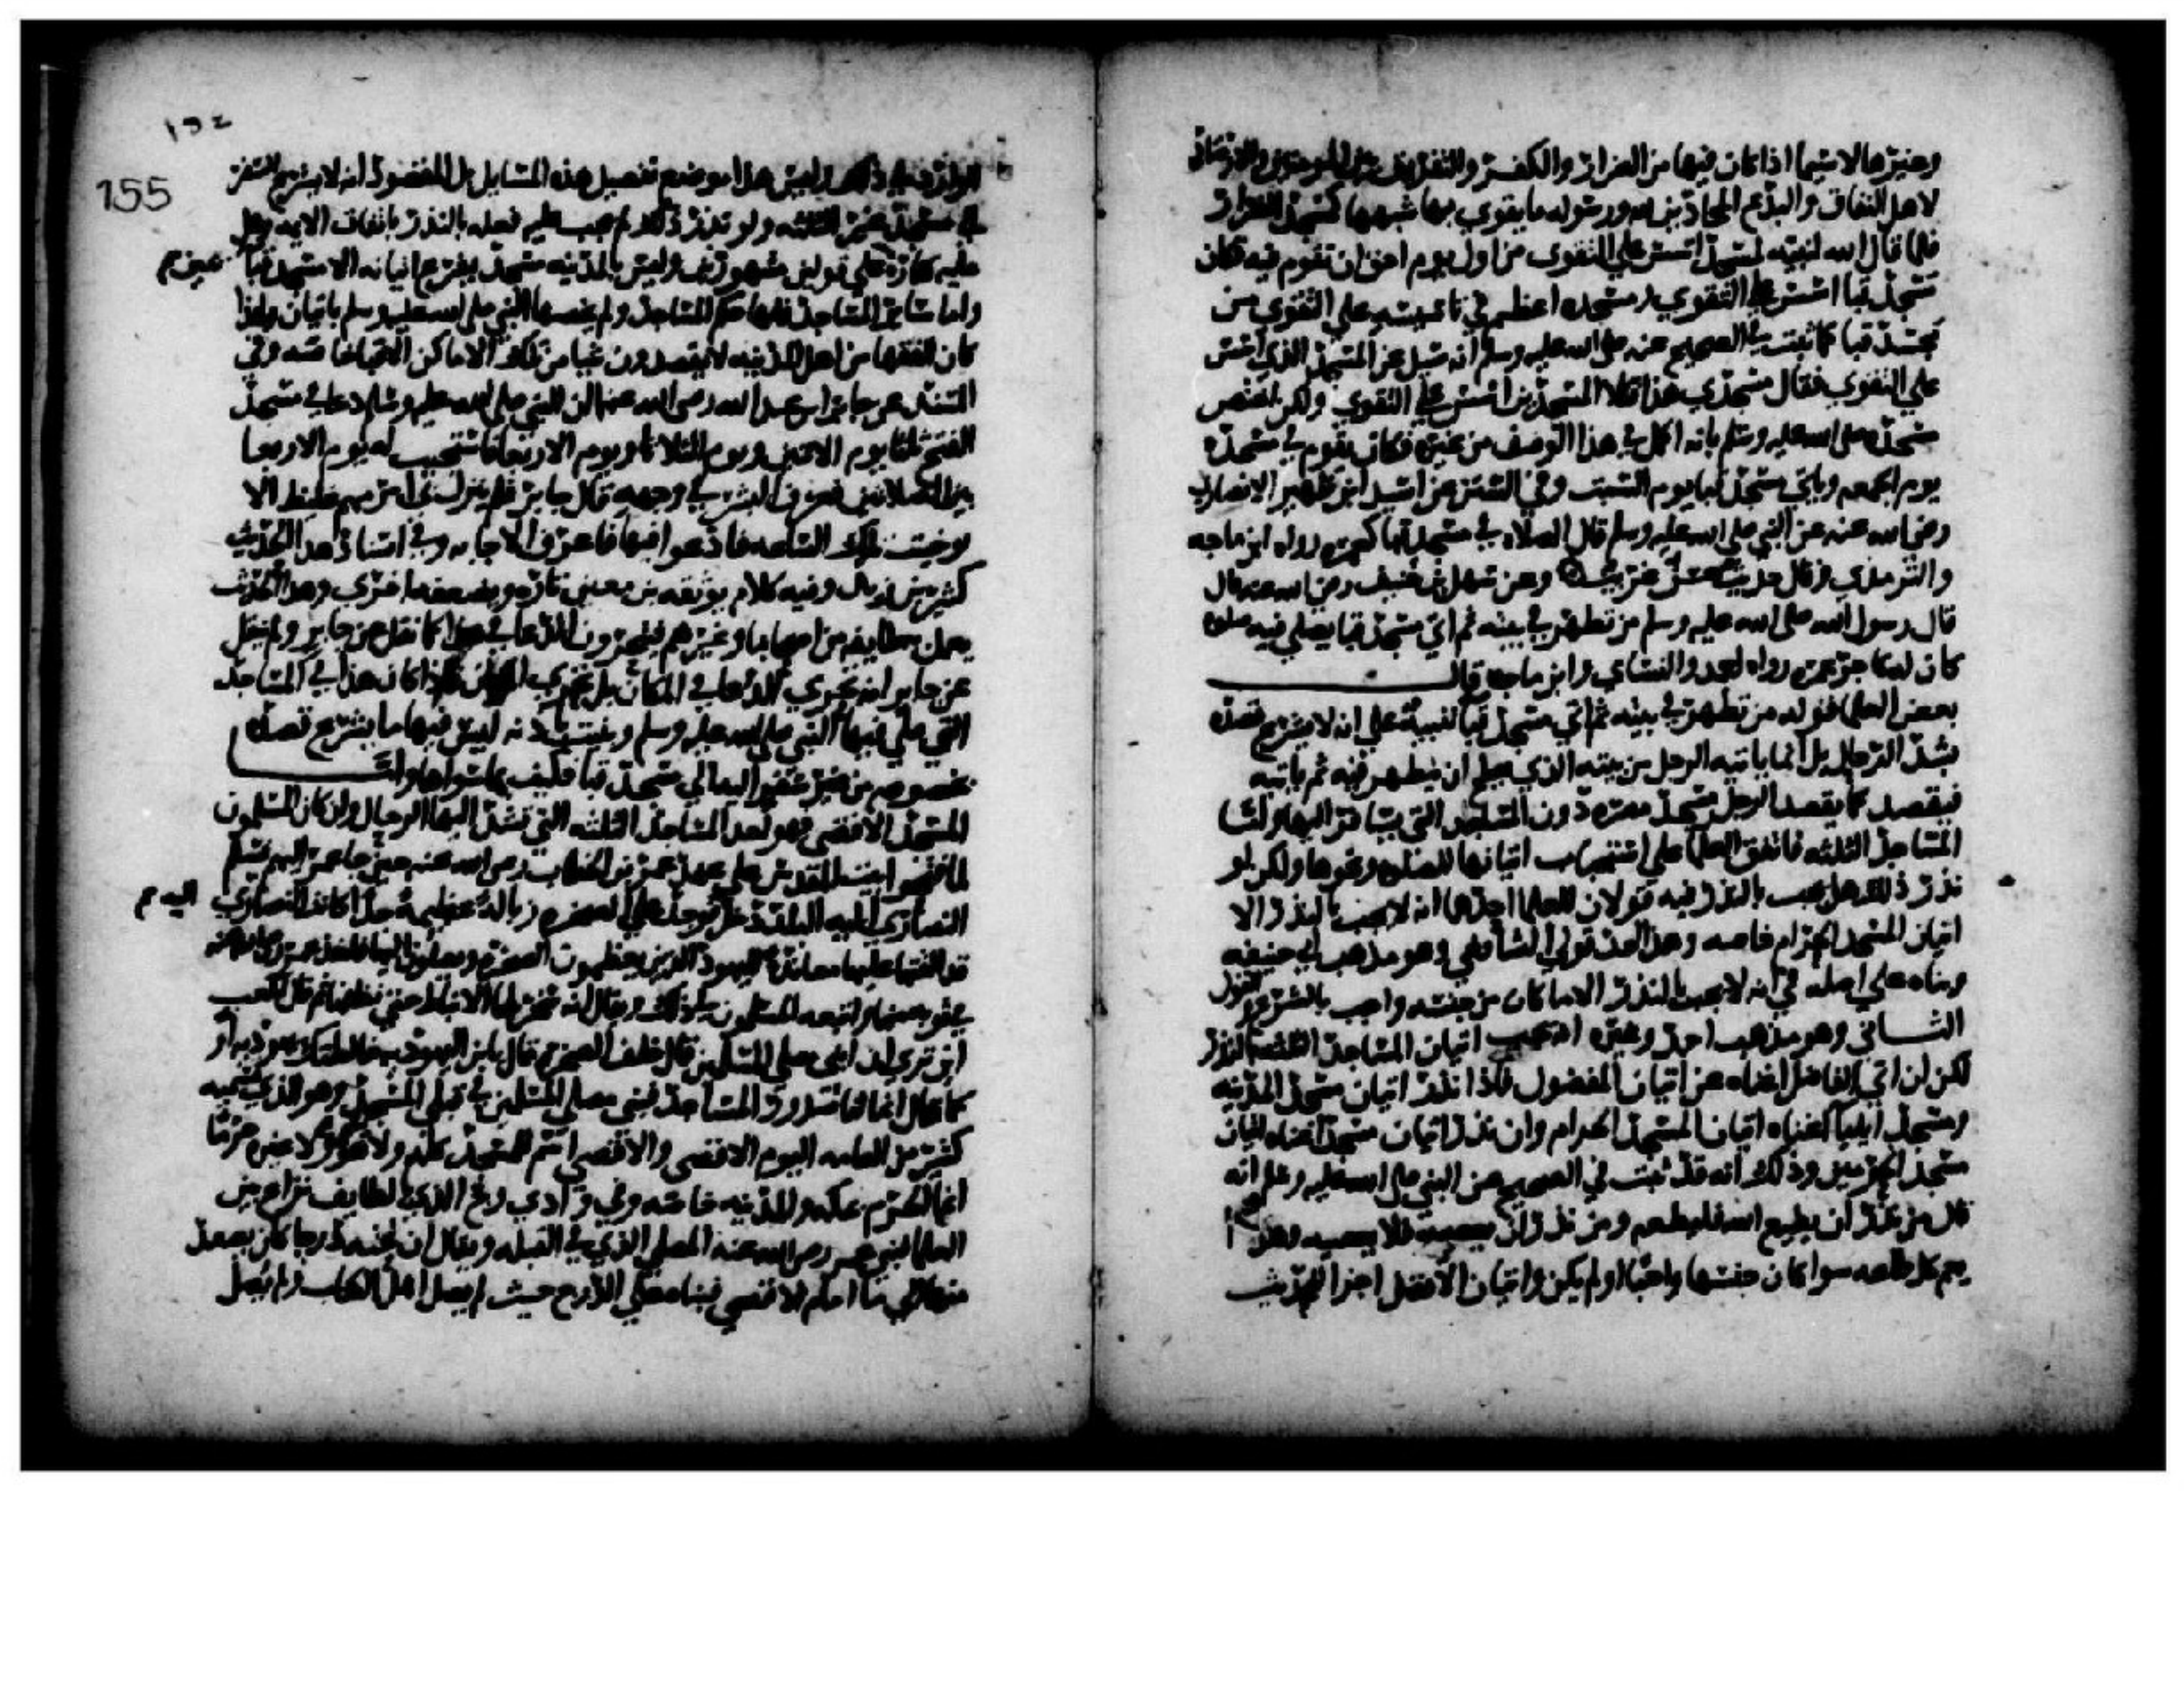 وغيرها لا سيما اذا كان فيها من الضرار والكفر والتفريق بين المومنين والارصاد
لاهل النفاق والبدع المحادين لله ورسوله ما يقوي بها شبهها كمسجد الضرار
فلما قال الله لنبيه لمسجد اسس على التقوى من اول يوم احق ان تقوم فيه فكان
مسجد قبا اسس على التقوي ومسجده اعظم في تاسيسه علي التقوي من
مسجد قبا كما ثبت في الصحيح عنه صلى الله عليه وسلم انه سيل عن المسجد الذي اسس
علي التقوي فقال مسجدي هذا فكلا المسجدين اسس على التقوي ولكن اختص
مسجده صلى الله عليه وسلم بانه اكمل في هذا الوصف من غيره فكان يقوم في مسجده
يوم الجمعه وياتي مسجد قبا يوم السبت وفي السنن عن اسيد ابن ظهير الانصاري
رضي الله عنه عن النبي صلى الله عليه وسلم قال الصلاه في مسجد قبا كعمره رواه ابن ماجه
والترمذي وقال حديث حسن غريب وعن سهل بن حنيف رضي الله عنه قال
قال رسول الله صلى الله عليه وسلم من تطهر في بيته ثم اتى مسجد قبا يصلي فيه صلاه
كان له كاجر عمره رواه احمد والنساي وابن ماجه قال
بعض العلما قوله من تطهر في بيته ثم اتي مسجد قبا تنبيه على انه لا يشرع قصده
بشد الرحال بل انما ياتيه الرجل من بيته الذي يصلح ان يتطهر فيه ثم ياتيه
فيقصده كما يقصد الرجل مسجد مصره دون المساجد التي يسافر اليها واما
المساجد الثلثه فاتفق العلما على استحباب اتيانها للصلاه ونحوها ولكن لو
نذر ذلك هل يجب بالنذر فيه قولان للعلما احدهما انه لا يجب بالنذر الا
اتيان المسجد الحرام خاصه وهذا احد قولي الشافعي وهو مذهب ابي حنيفه
وبناه علي اصله في انه لا يجب بالنذر الا ما كان من جنسه واجب بالشرع والقول
الثاني وهو مذهب احمد وغيره انه يجب اتيان المساجد الثلثه بالنذر
لكن ان اتي الفاضل اغناه عن اتيان المفضول فاذا نذر اتيان مسجد المدينه
ومسجد ايليا اغناه اتيان المسجد الحرام وان نذر اتيان مسجد اغناه اتيان
مسجد الحرمين وذلك انه قد ثبت في الصحيح عن النبي صلى الله عليه وسلم انه
قال من نذر ان يطيع الله فليطعه ومن نذر ان يعصيه فلا يعصيه وهذا
يعم كل طاعه سوا كان جنسها واجبا او لم يكن واتيان الافضل اجزا للحديث
١٥٤
155
الوارد في ذلك وليس هذا موضع تفصيل هذه المسايل بل المقصود انه لا يشرع السفر
الي مسجد غير الثلثه ولو نذر ذلك لم يجب عليه فعله بالنذر باتفاق الايمه وهل
عليه كفارة على قولين مشهورين وليس بالمدينه مسجد يشرع اتيانه الا مسجد قبا
واما ساير المساجد فلها حكم المساجد ولم يخصها النبي صلى الله عليه وسلم باتيان ولهذا
كان الفقها من اهل المدينه لا يقصدون شيا من تلك الاماكن الا قبا خاصه وفي
المسند عن جابر ابن عبد الله رضى الله عنهما ان النبي صلى الله عليه وسلم دعا في مسجد
الفتح ثلثا يوم الاثنين ويوم الثلاثا ويوم الاربعا فاستجيب له يوم الاربعا
بين الصلاتين فعرف البشر في وجهه قال جابر فلم ينزل بي امر مهم غليظ الا
توخيت تلك الساعه فادعوا فيها فاعرف الاجابه وفي اسناد هذا الحديث
كثير بن زيد وفيه كلام يوثقه بن معين تارة ويضعفه اخري وهذا الحديث
يعمل به طايفه من اصحابنا وغيرهم فيتحرون الدعا في هذا كما نقل عن جابر ولم ينقل
عن جابر انه تحري الدعا في المكان بل تحري الزمان فاذا كان هذا في المساجد
التي صلي فيها النبي صلى الله عليه وسلم وبنيت باذنه ليس فيها ما يشرع قصده
بخصوصه من غير سفر اليه الا مسجد قبا فكيف بما سواها واما
المسجد الاقصي فهو احد المساجد الثلثه التي تشد اليها الرحال وان كان المسلمون
لما فتحوا بيت المقدس على عهد عمر بن الخطاب رضى الله عنه حين جا عمر اليهم فسلم
النصاري اليه البلد دخل فوجد علي الصخره زبالة عظيمة جدا كانت النصاري
قد القتها عليها معاندة لليهود الذين يعظمون الصخره ويصلون اليها فاخذ عمر رضى الله عنه
في ثوبه منها واتبعه المسلمون في ذلك ويقال انه سخر لها الانباط حتى نظفها ثم قال لكعب
اين تري ان ابني مصلى المسلمين قال خلف الصخره قال يا ابن اليهوديه خالطتك يهوديه او
كما قال انما لنا صدور المساجد فبنى مصلى المسلمين في قبلي المسجد وهو الذي يسميه
كثير من العامه اليوم الاقصي والاقصي اسم للمسجد كله ولا هو ولا غيره حرما
انما الحرم بمكه والمدينه خاصه وفي وادي وج الذي بالطايف نزاع بين
العلما فبنى عمر رضى الله عنه المصلى الذي في القبله ويقال ان تحته درجا كان يصعد
منها الي ما امام الاقصي فبناه على الدرج حيث لم يصل اهل الكتاب ولم يصل